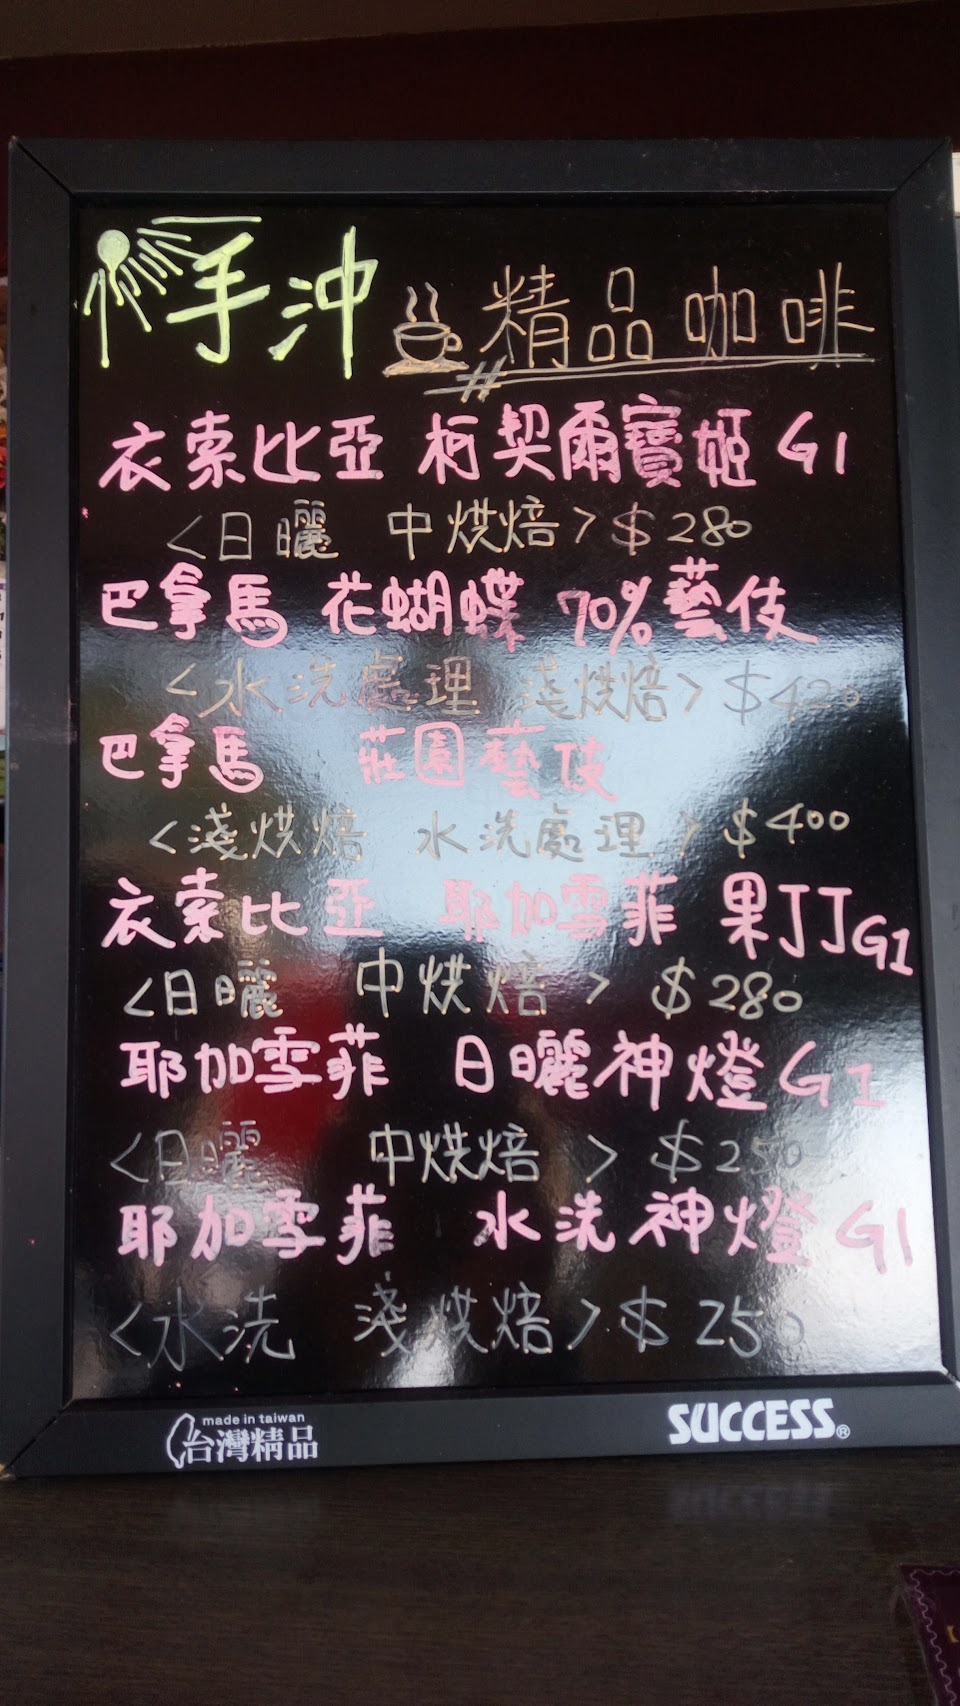 手沖 精品咖啡
衣索比亞 柯契爾寶姬 G1
<日曬 中烘焙> $280
巴拿馬 花蝴蝶 70%藝伎
<水洗處理 淺烘焙> $420
巴拿馬 莊園藝伎
<淺烘焙 水洗處理> $400
衣索比亞 耶加雪菲 果丁丁G1
<日曬 中烘焙> $280
耶加雪菲 日曬神燈G1
<日曬 中烘焙> $250
耶加雪菲 水洗神燈G1
<水洗 淺烘焙> $250
made in taiwan
台灣精品
SUCCESS®